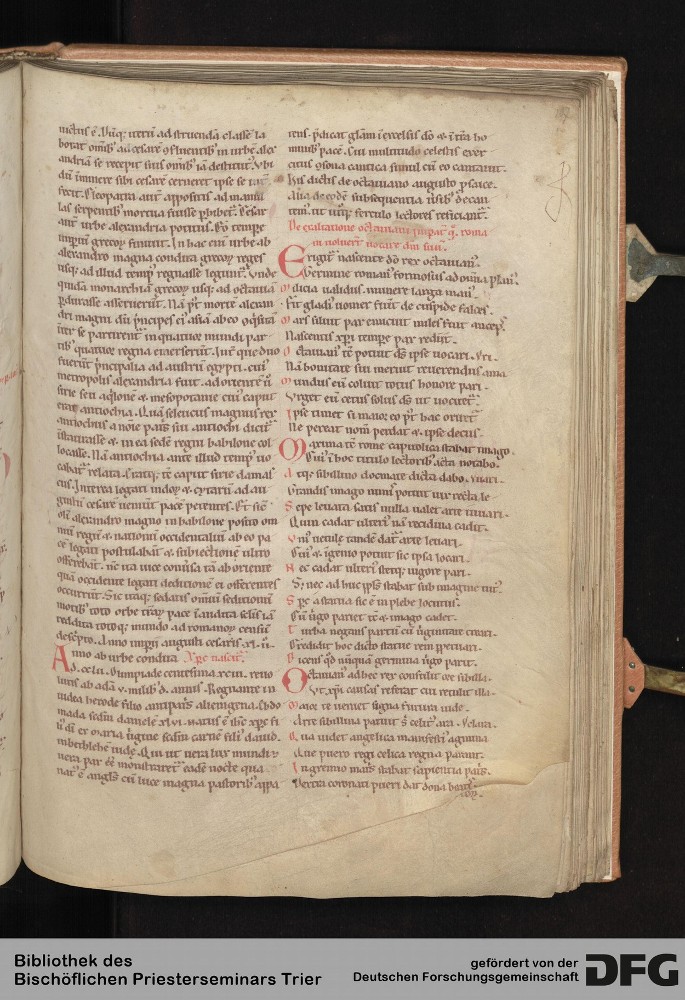 uictus ē. Vnuꝗ; iterū ad struendā classē la
borat omib; ad cesarē ꝯfluentib; in urbē alex
andriā se recepit suis omib; iā destitut'. Vbi
dū īminere sibi cesarē cerneret ipse se
fecit. Cleopatra aut̄ appositis ad mamil
las serpentib; mortua fuisse ꝑhibet᷑. Cesar
aut̄ urbe alexandria potitus.
impiū grecoꝝ finiuit. In hac eni urbe ab
alexandro magno condita grecoꝝ reges
usq; ad illud temp' regnasse legunt᷑. Vnde
quidā monarchiā grecoꝝ usq; ad octauiā
ꝑdurasse asseruerūt. Nā post mortē alexan
dri magni dū principes ei' asiā ab eo ꝗsitā
int̄ se partirent᷑ in quatuor mundi par
tib; quatuor regna emerserūt. Int̄ que duo
fuerūt principalia ad austrū egypti. cui'
metropolis alexandria fuit. ad orientē ū
sirie seu aꝗlonē & mesopotanie cui' caput
erat antiochia. Quā seleucus magnus rex
antiochus a noīe patris sui antiochi dicit᷑
īstaurasse & in ea sedē regni babilone col
locasse. Nā antiochia ante illud temp'
cabat᷑ relata. Eratq; tē caput sirie damas
cus. Interea legati indoꝝ & cytarū ad au
gustū cesarē ueniūt pacē petentes. Et sic
olī alexandro magno in babilone posito om
niū regū & nationū occidentaliū ab eo pa
cē legati postulabāt & subiectionē ultro
offerebāt. ita uice conūsa tā ab oriente
quā occidente legati deditionē ei offerentes
occurrūt. Sic itaq; sedatis omniū seditionū
motib; toto orbe pace īaudita sclis iā
reddita totoq; mundo ad romanoꝝ censū
descpto. Anno impii augusti cesaris xl. ii.
Anno ab urbe condita Xpc nascit᷑.
d. cc. lii. Olimpiade centesima xc. iii. reuo
lutis ab adā v. milib; d. annis. Regnante in
iudea herode filio antipatris alienigena.
mada sedm daniele xl. vi. natus ē ihc xpc fi
li' di ex maria uirgine sedm carnē fili' dauid.
in bethlehē iude. Qui ut uera lux mundi &
uera pax eē monstraret᷑ eadē nocte qua
nat' ē angls cū luce magna pastorib; appa
rens. p̄dicat gl̄am ī excelsis do & ī t̄ra ho
minib; pacē. Cui multitudo celestis exer
citus ꝯsona cantica simul cū eo cantauit.
His dictis de octauiano augusto psaice.
Alia de eodē subsequentia ūsib; decan
tem. ut uitꝫ ferculo lectores reficiant᷑.
De exaltatione octauiani impat ꝗ. roma
ni uoluerūt uocare dm suū.
Erigit᷑ nascente do rex octauian'.
Germine roman' formosus ad omīa plan'.
Milicia ualidus. munere larga man'.
Fit gladi' uomer fiūt de cuspide falces.
Mars siluit pax emicuit miles fuit auceps.
Nascentis xpi tempe pax rediit.
Octauian' tē potuit ds ipse uocari.
Nā bonitate sui meruit reuerendus ama
Mundus eū coluit totus honore pari.
Vrget eū cetus solus ds ut uocitet᷑.
Ipse timet si maior eo p' hac oriet᷑
Ne pereat nom̄ perdat & ipse decus.
Maxima tē rome capitolica stabat imago.
Cui' ī hoc titulo lectorib; acta notabo.
Atq; sibillino docmate dicta dabo.
Grandis imago nimis potuit uix recta le
Sepe leuata satis nulla ualet arte iuuari.
Quin cadat ulteri' nā recidiua cadit.
Vni' uetulę tandē dat᷑ arte leuari.
Cui' & īgenio potuit sic ipsa locari.
Nec cadat ulteri' stetq; uigore pari.
S; nec ad huc ipsꝫ stabat sub imagine tut'.
Sepe a statua sic ē in plebe locutus.
Cū uirgo pariet tc & imago cadet.
Turba negans partū cū uirginitate creari.
Credidit hoc dicto statue rem perpetuari.
Dicens qd nūquā germina uirgo parit.
Octauian' adhec rex consulit ore sibilla.
Vt xpi causas referat cui retulit illa.
Maior te ueniet signa futura uide.
Arte sibillina patuit s celit' ara.
Qua uidet angelica manifesti agmina.
Que puero regi celica regna parant.
In gremio matris stabat sapientia patris.
Dextra coronati pueri dat dona
Bibliothek des
Bischöflichen Priesterseminars Trier
gefördert von der
Deutschen Forschungsgemeinschaft
DFG